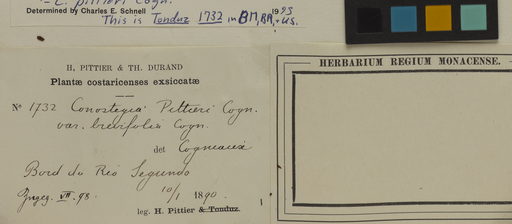 C. pittieri Cogn.
Determined by Charles E. Schnell 1993
This is Tonduz 1732 in BM, BR, + US.
H. PITTIER & TH. DURAND
Plantæ costaricenses exsiccatæ
No 1732 Conostegia Pittieri Cogn.
var. brevifolia Cogn.
det Cogniaux
Bord du Rio Segundo
10/1 1890.
Ingeg. VII. 98.
leg. H. Pittier & Tonduz.
HERBARIUM REGIUM MONACENSE.